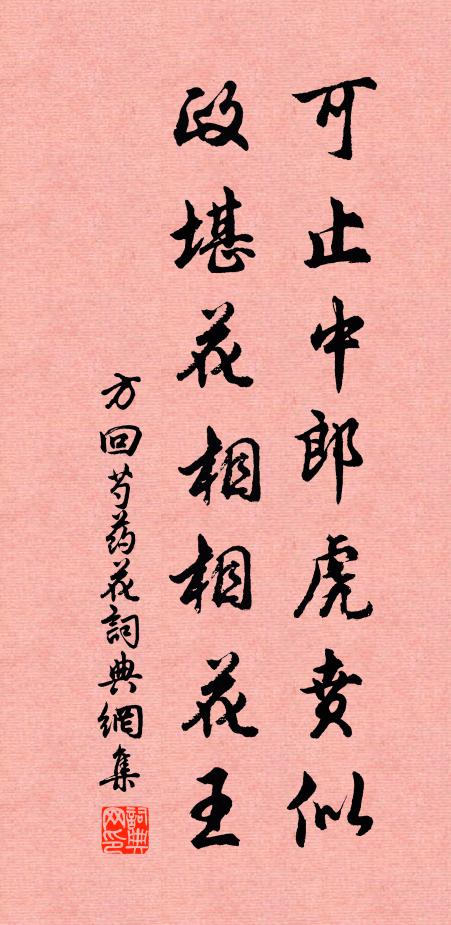 可止中郎虎贲似
政堪花相相花王
方回芍药花詞典網集
詞典网印